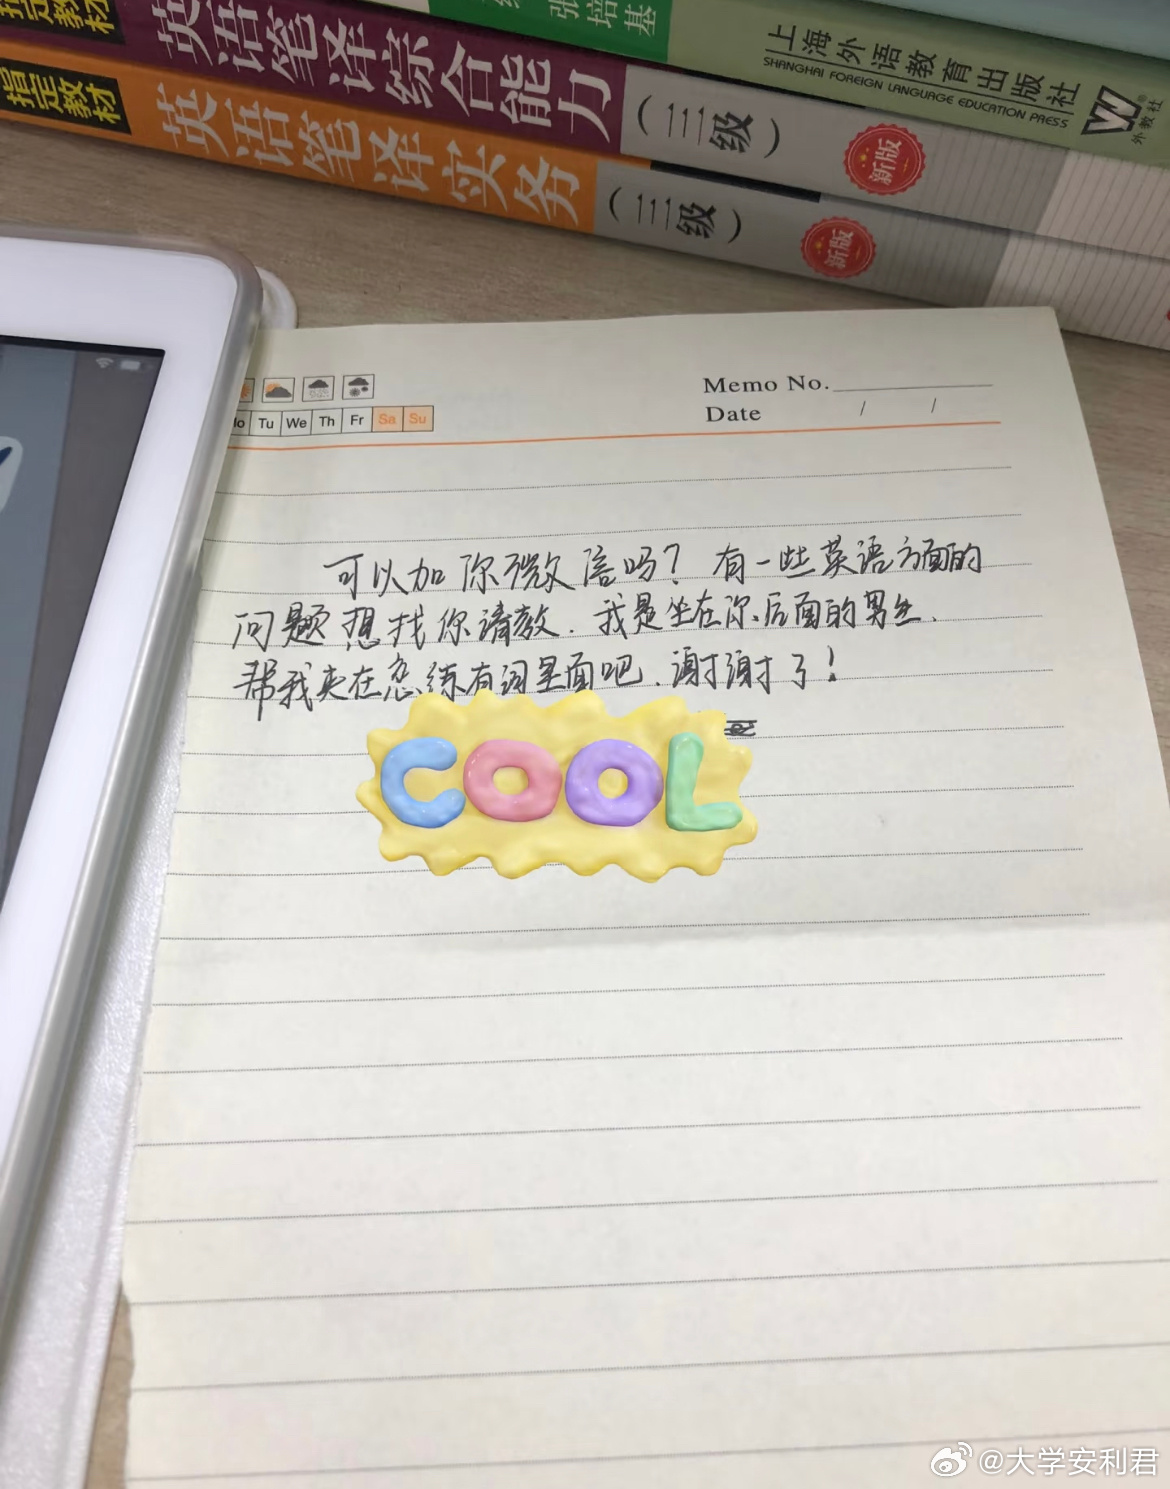 指定教材
英语笔译综合能力
（三级）
新版
张培基
上海外语教育出版社
SHANGHAI FOREIGN LANGUAGE EDUCATION PRESS
外教社
指定教材
英语笔译实务
（三级）
新版
Memo No.
Tu We Th Fr Sa Su
Date / /
可以加你微信吗？有一些英语方面的
问题想找你请教．我是坐在你后面的男生．
帮我夹在恋练有词里面吧．谢谢了！
COOL
@大学安利君